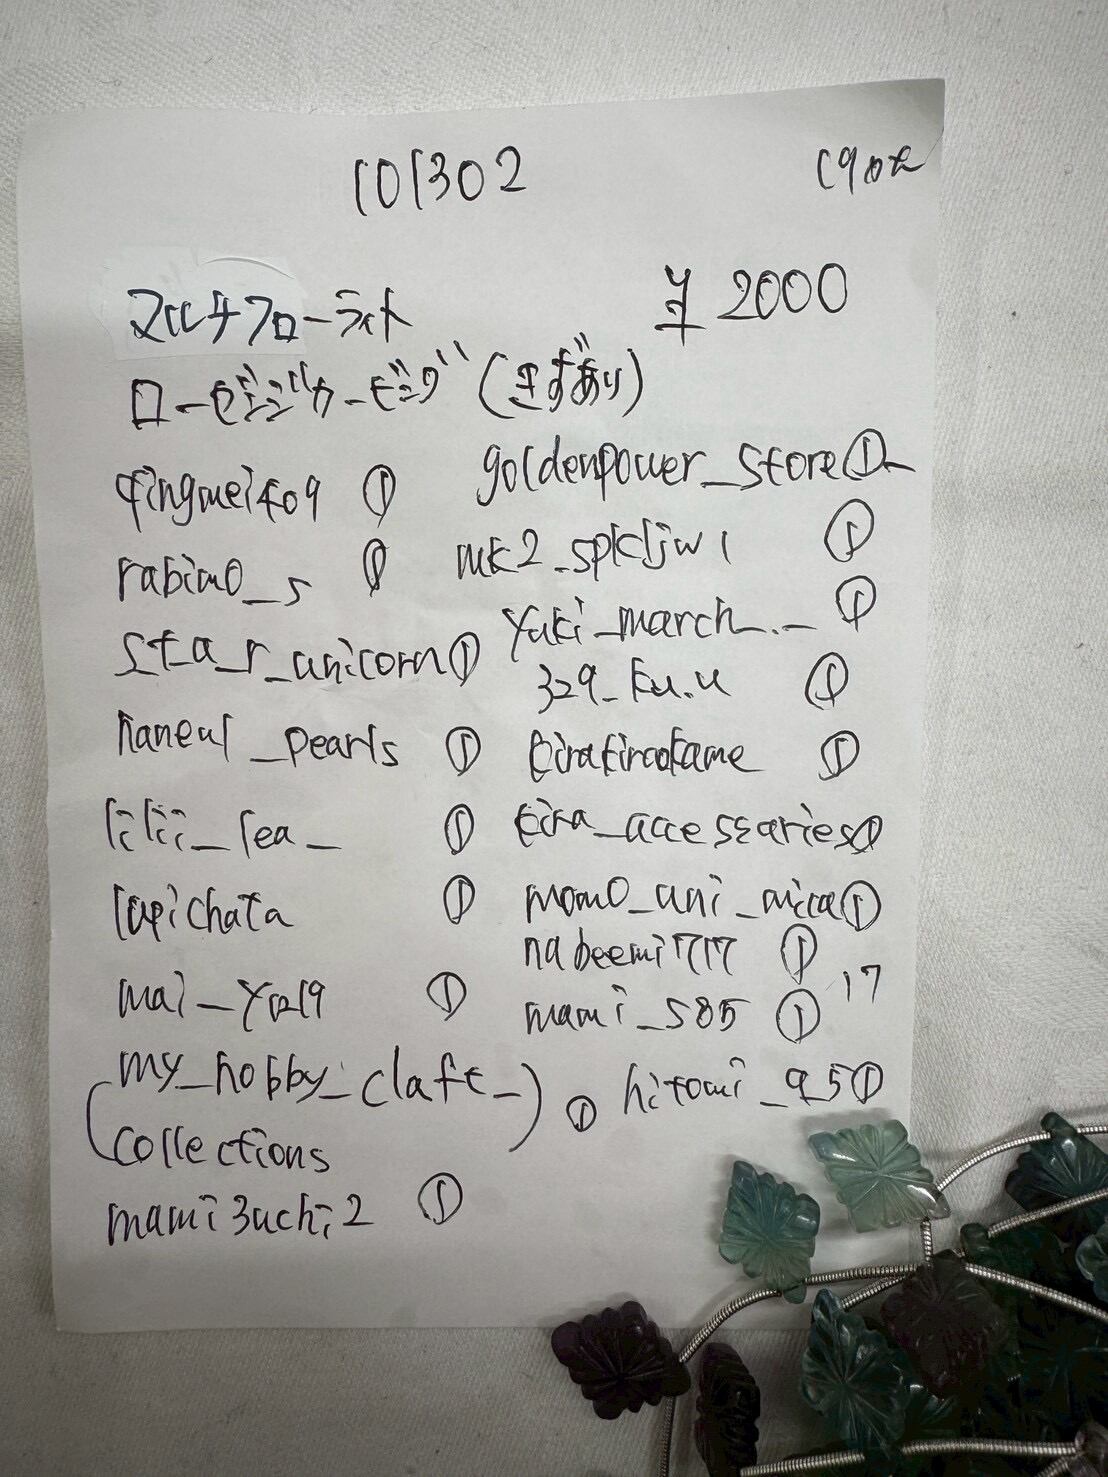 101302
¥2000
マルチフローライト
ローゼンジカービング (きずあり)
qingmei409 ①
rabimo_s ①
star_unicorn ①
haneul_pearls ①
lilii_lea_ ①
lapichata ①
mai_ ①
(my_hobby_claft_
collections) ①
mami3uchi2 ①
goldenpower_store ①
mk2_spkljw1 ①
yuki_march_._ ①
329_ku.u ①
①
kira_accessaries ①
momo_uni_mica ①
nabeemi717 ①
17
mami_s85 ①
hitomi_95 ①